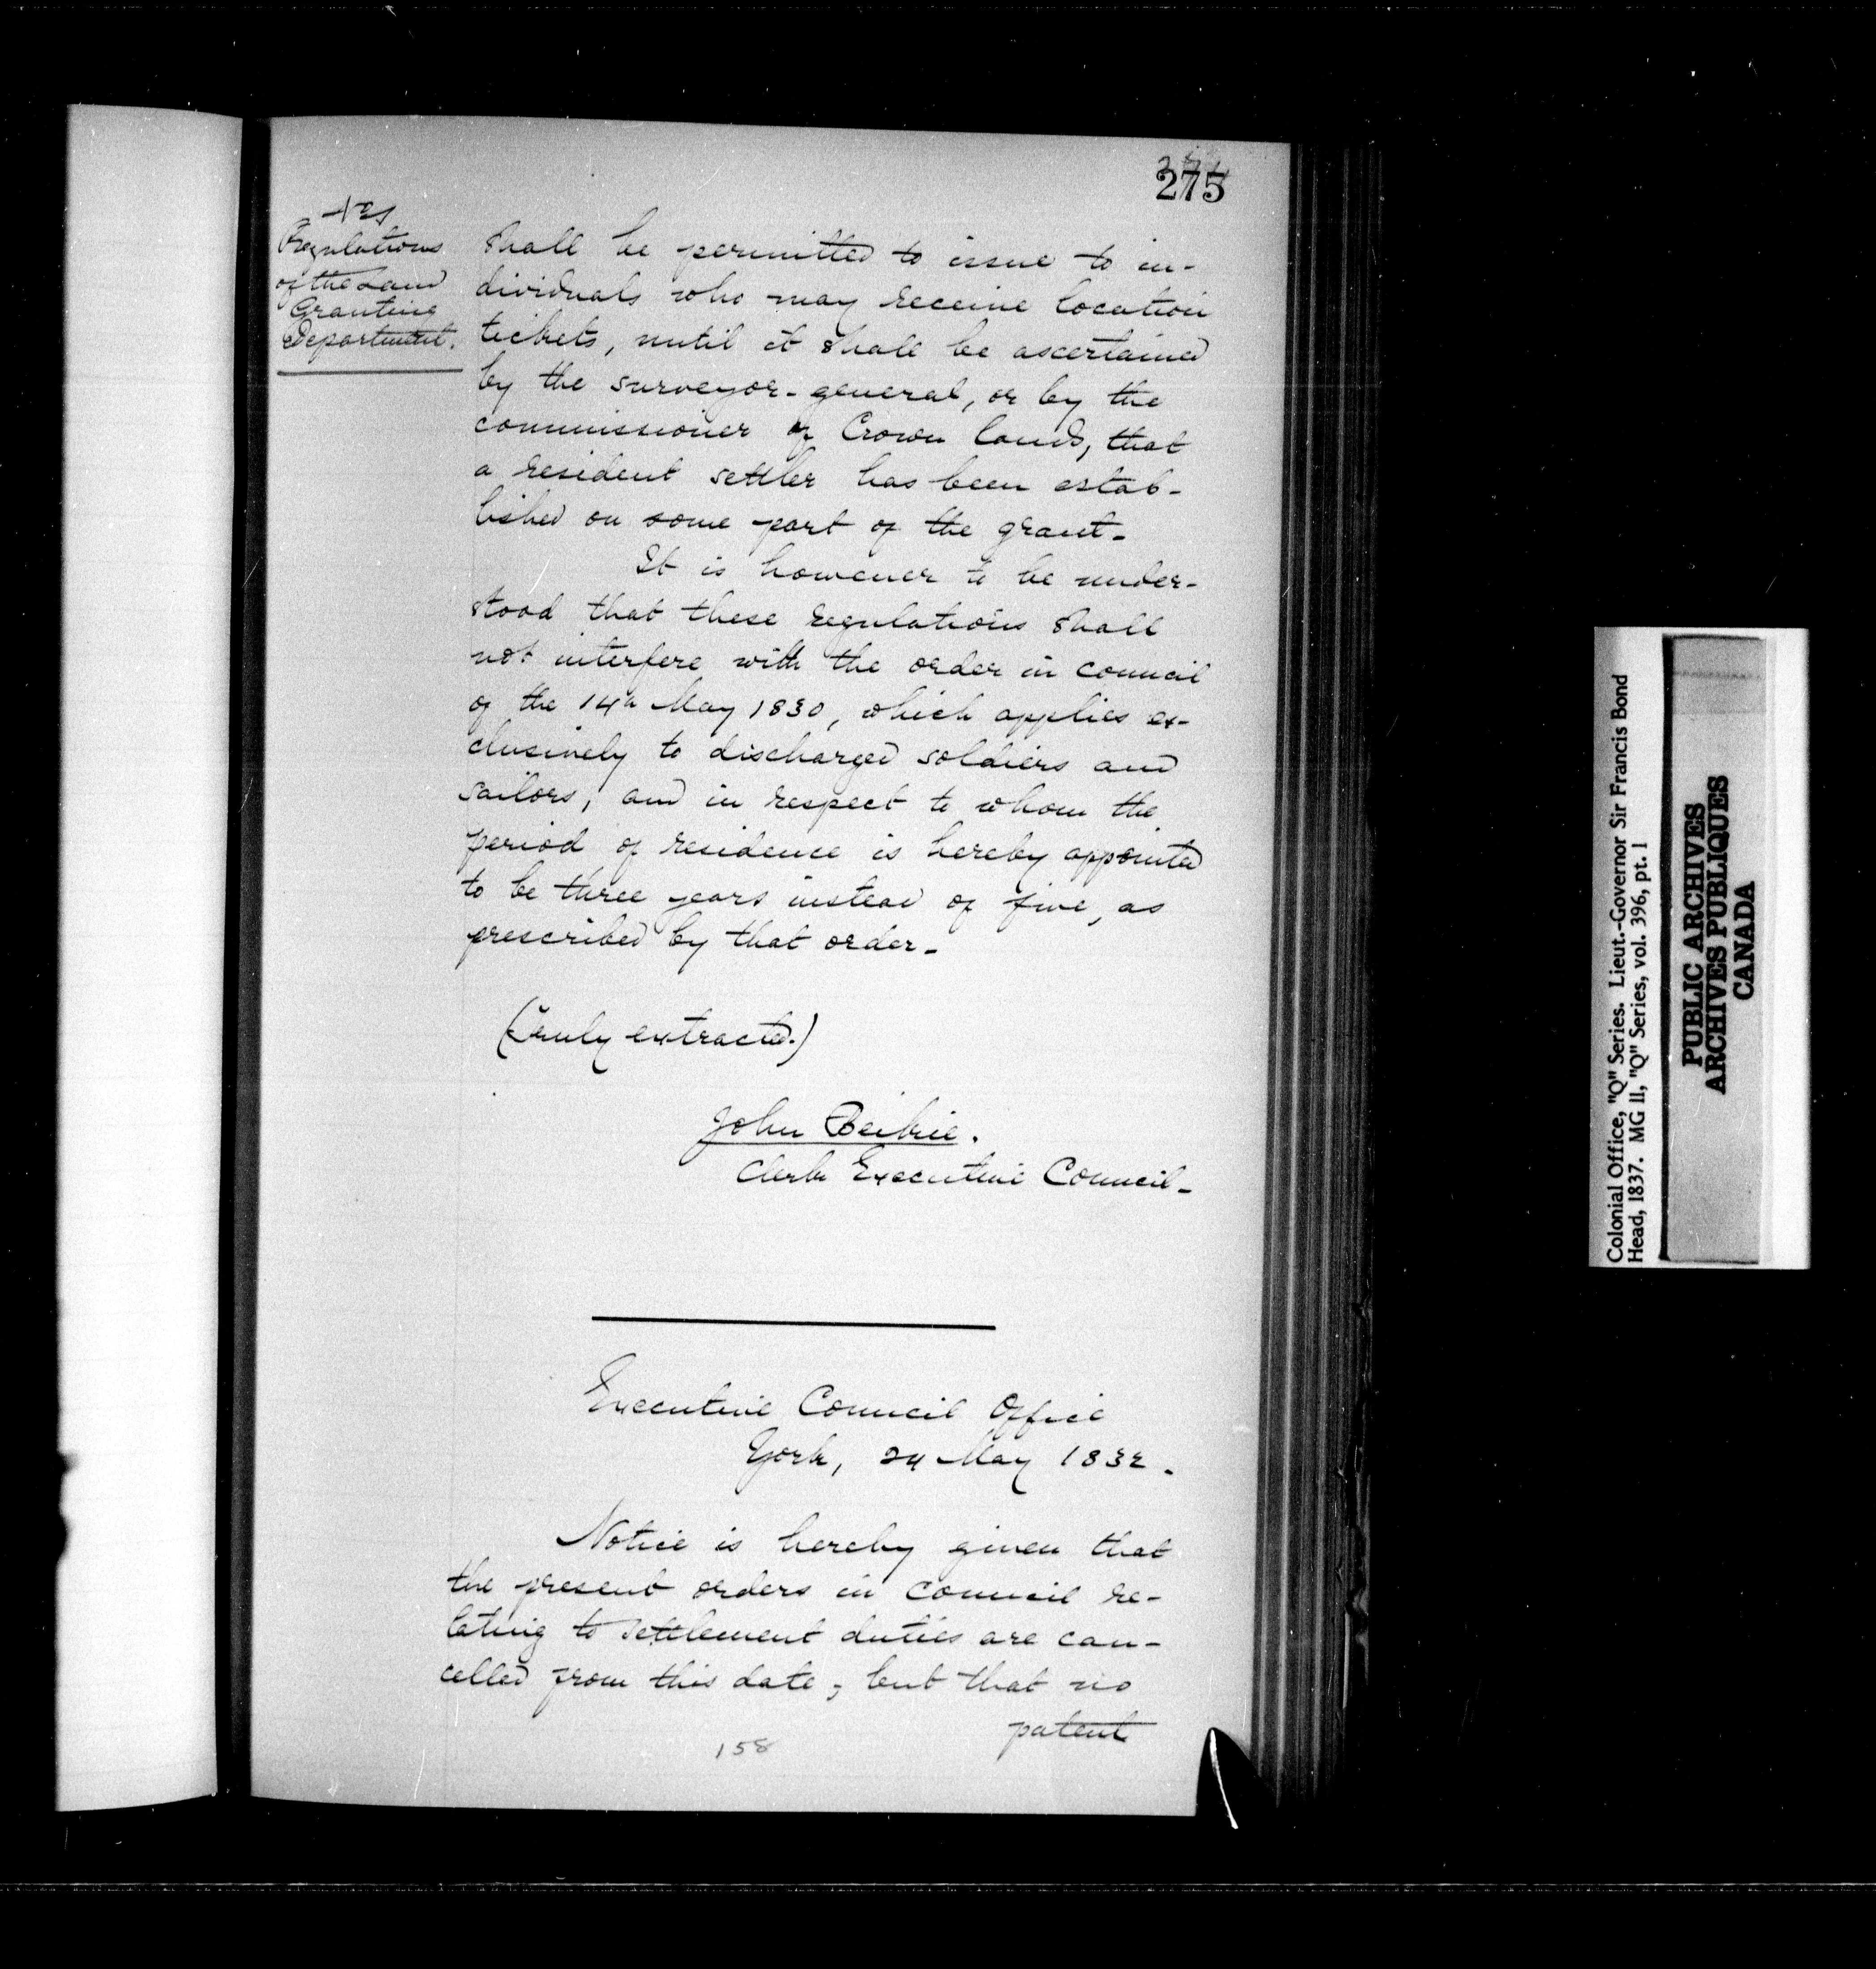 275
Regulations
of the Land
Granting
Department.
shall be permitted to issue to in-
dividuals who may receive location
tickets, until it shall be ascertained
by the surveyor-general, or by the
commissioner of Crown lands, that
a resident settler has been estab-
lished on some part of the grant-
It is however to be under-
stood that these regulations shall
not interfere with the order in council
of the 14th May 1830, which applies ex-
clusively to discharged soldiers and
sailors, and in respect to whom the
period of residence is hereby appointed
to be three years instead of five, as
prescribed by that order-
(Truly extracted.)
John Beikie.
Clerk Executive Council-
Executive Council Office
York, 24 May 1832.
Notice is hereby given that
the present orders in council re-
lating to settlement duties are can-
celled from this date; but that no
patent
158
Colonial Office, "Q" Series. Lieut.-Governor Sir Francis Bond
Head, 1837. MG 11, "Q" Series, vol. 396, pt. 1
PUBLIC ARCHIVES
ARCHIVES PUBLIQUES
CANADA